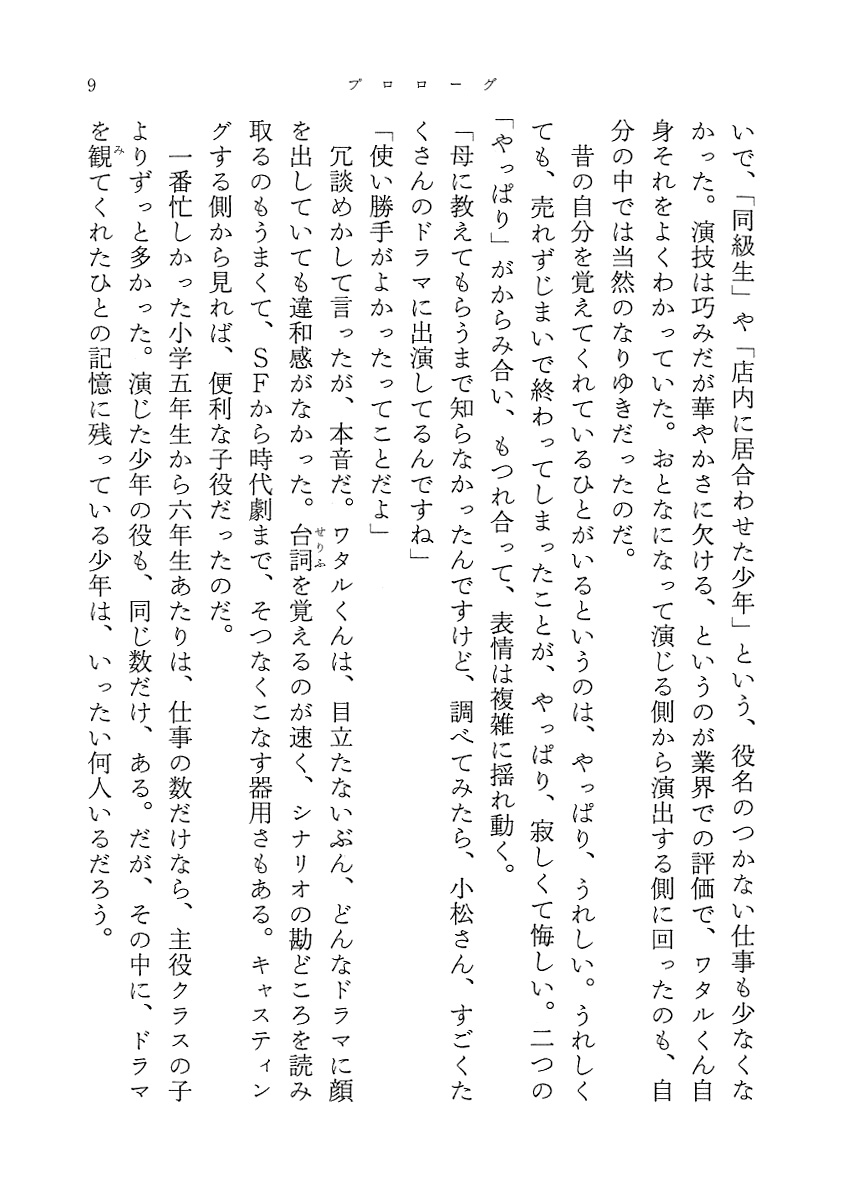 9
プロローグ
いで、「同級生」や「店内に居合わせた少年」という、役名のつかない仕事も少なくな
かった。演技は巧みだが華やかさに欠ける、というのが業界での評価で、ワタルくん自
身それをよくわかっていた。おとなになって演じる側から演出する側に回ったのも、自
分の中では当然のなりゆきだったのだ。
昔の自分を覚えてくれているひとがいるというのは、やっぱり、うれしい。うれしく
ても、売れずじまいで終わってしまったことが、やっぱり、寂しくて悔しい。二つの
「やっぱり」がからみ合い、もつれ合って、表情は複雑に揺れ動く。
「母に教えてもらうまで知らなかったんですけど、調べてみたら、小松さん、すごくた
くさんのドラマに出演してるんですね」
「使い勝手がよかったってことだよ」
冗談めかして言ったが、本音だ。ワタルくんは、目立たないぶん、どんなドラマに顔
を出していても違和感がなかった。台詞せりふを覚えるのが速く、シナリオの勘どころを読み
取るのもうまくて、ＳＦから時代劇まで、そつなくこなす器用さもある。キャスティン
グする側から見れば、便利な子役だったのだ。
一番忙しかった小学五年生から六年生あたりは、仕事の数だけなら、主役クラスの子
よりずっと多かった。演じた少年の役も、同じ数だけ、ある。だが、その中に、ドラマ
を観みてくれたひとの記憶に残っている少年は、いったい何人いるだろう。